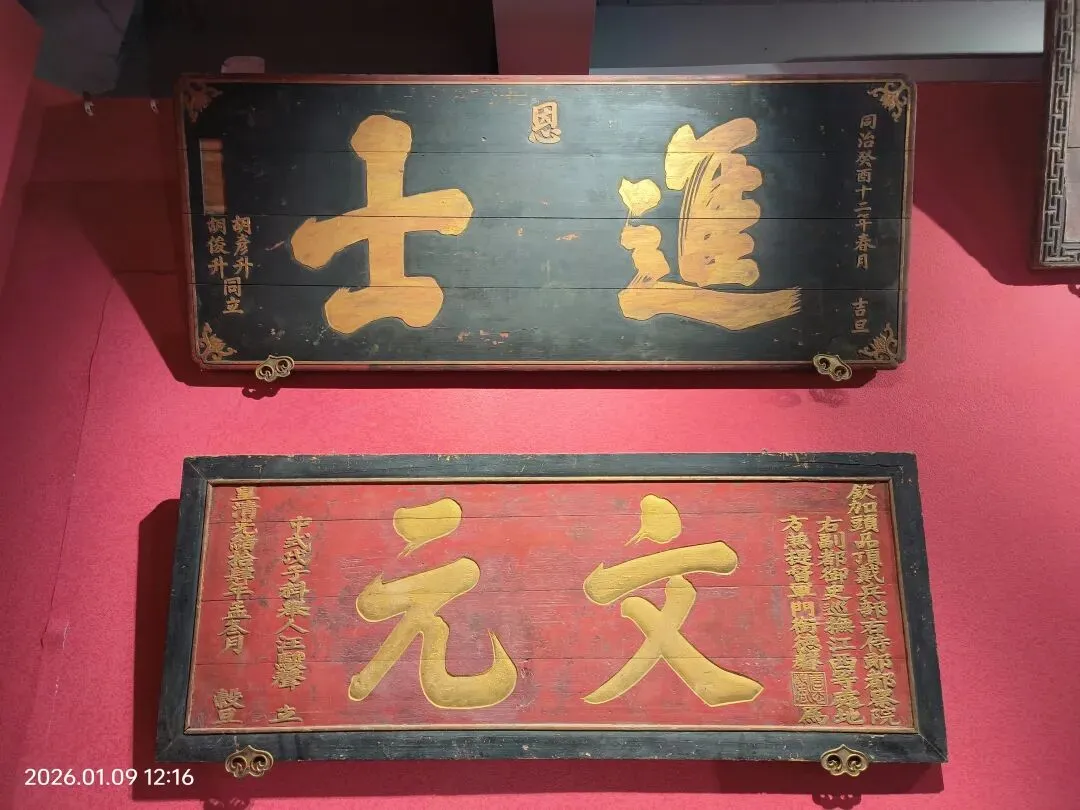 恩
進士
同治癸酉十二年春月 吉旦
胡彥升
胡俊升
同立
欽加頭品頂戴兵部右侍郎都察院
右副都御史巡撫江西等處地
方兼提督軍門衔德馨 為
文元
中式戊子科舉人江 立
皇清光緒拾 年孟冬月 穀旦
2026.01.09 12:16